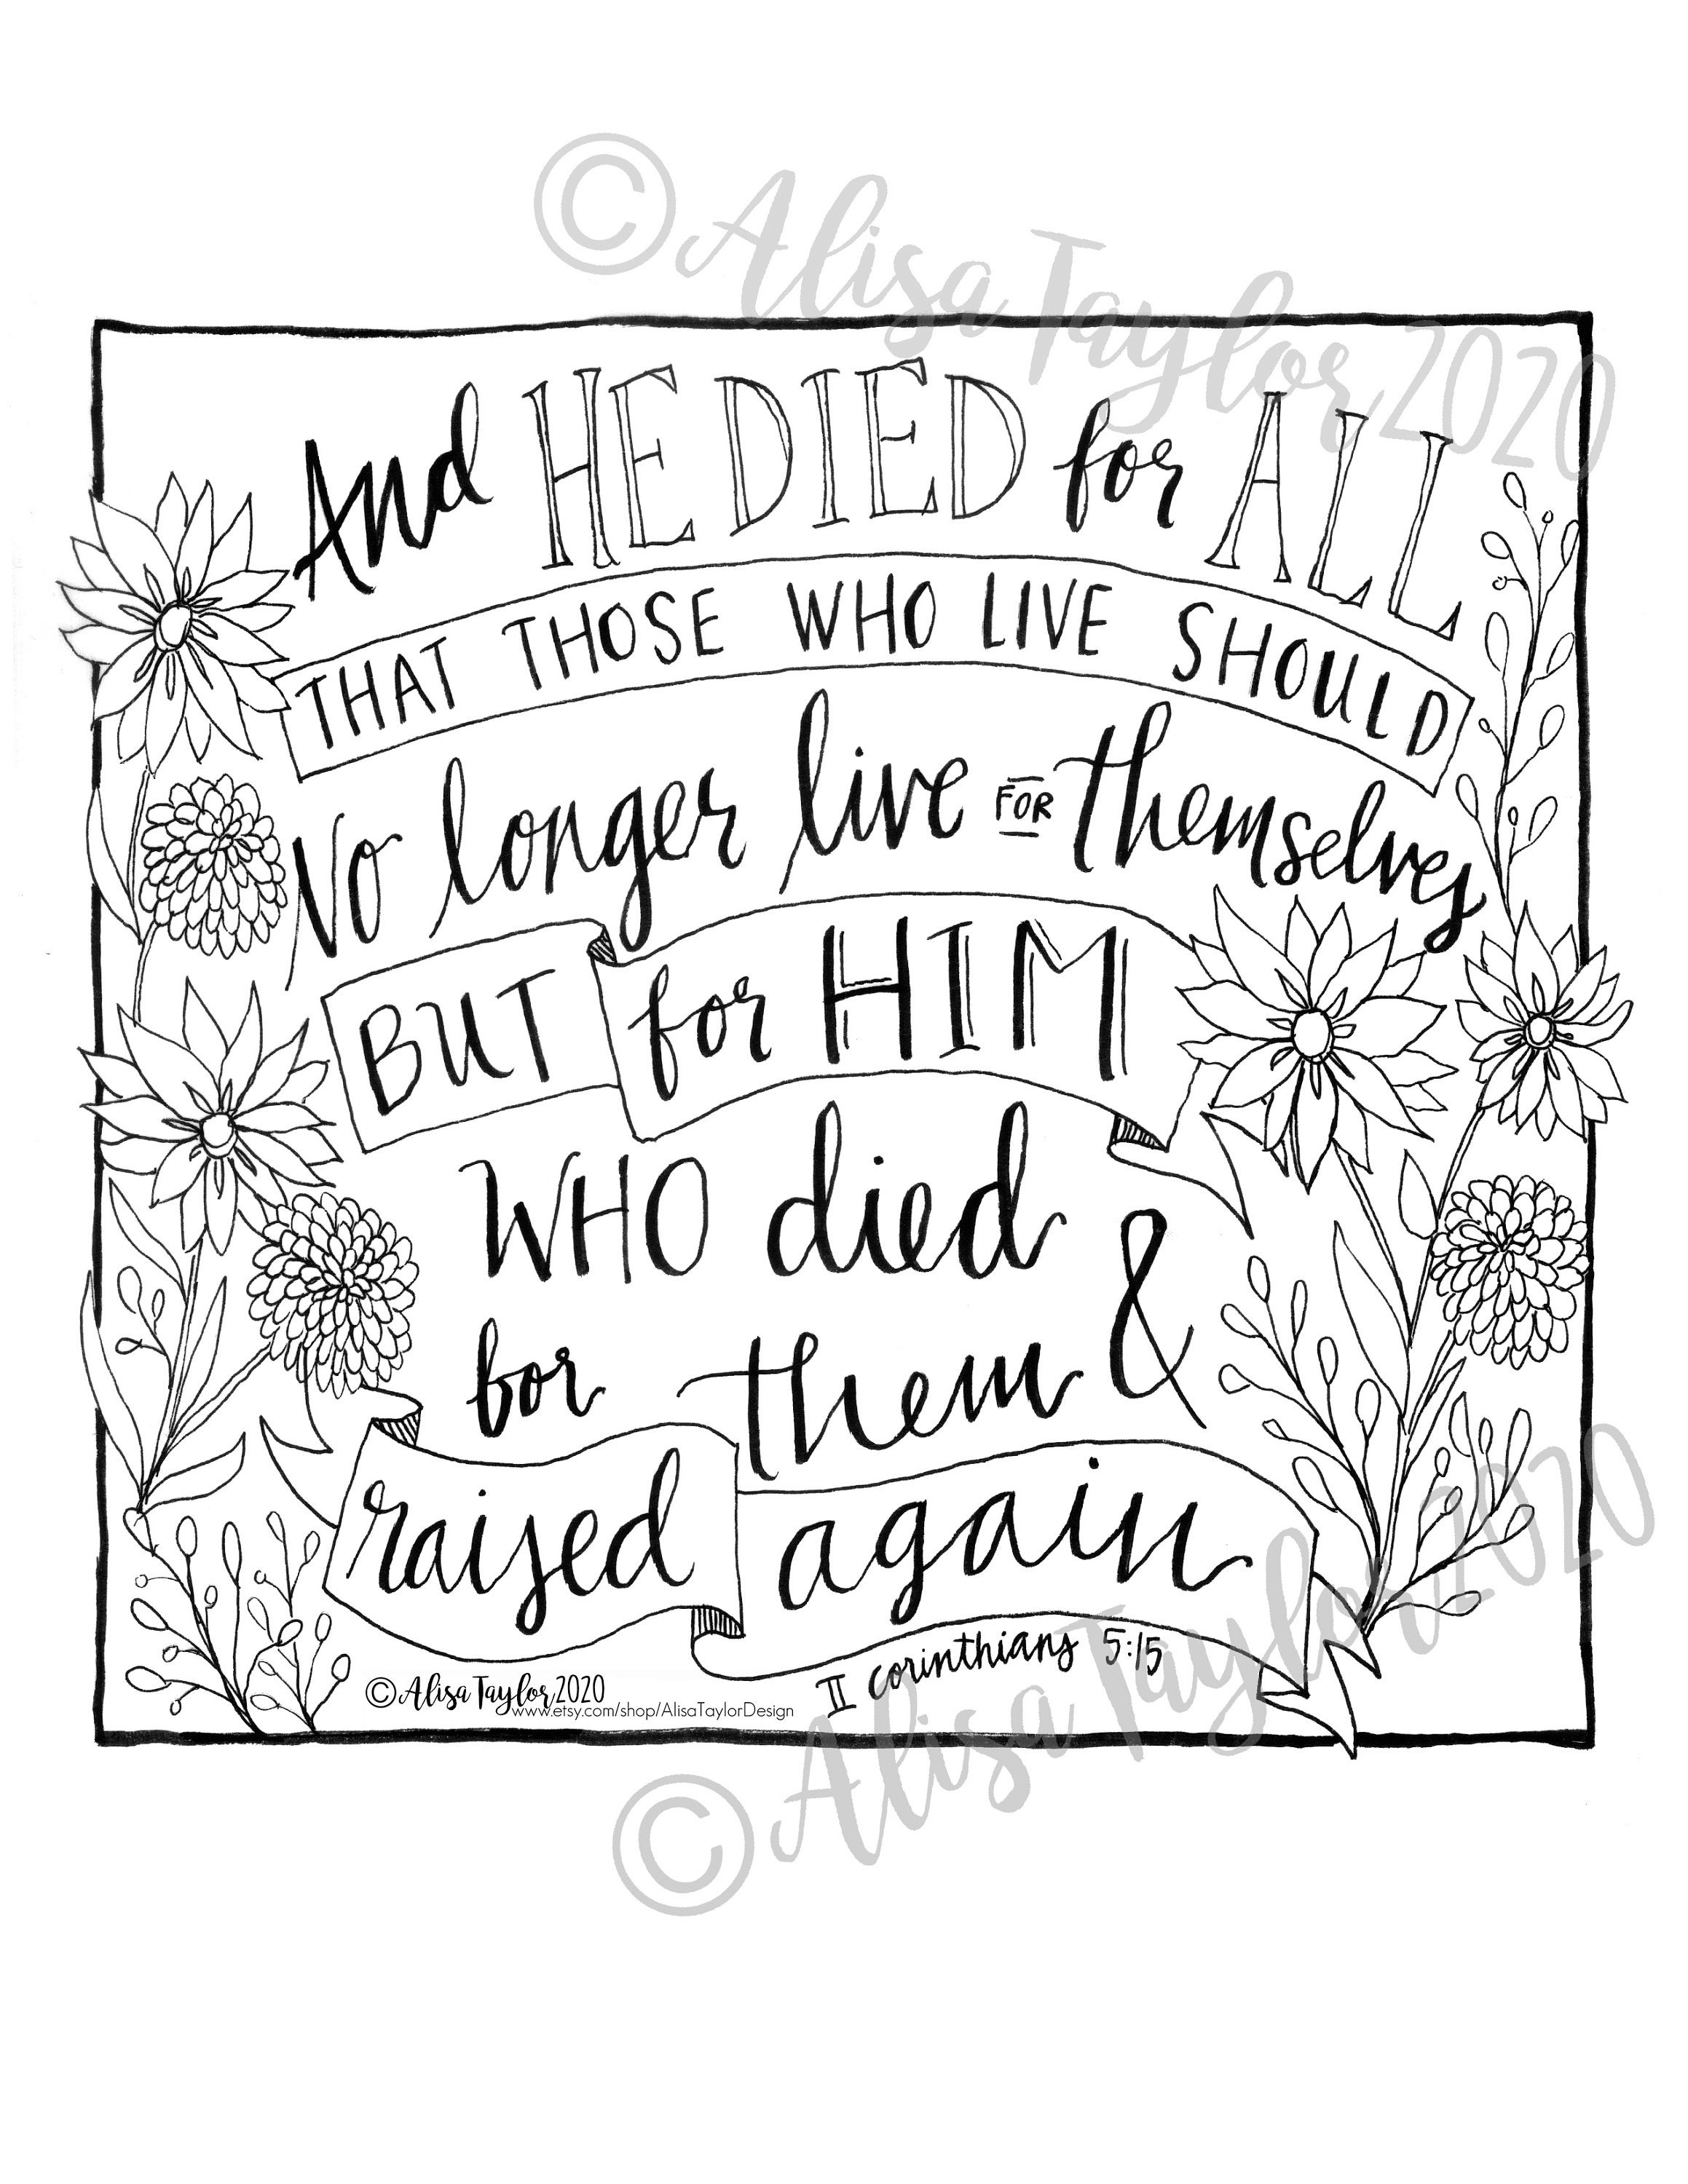 © Alisa Taylor 2020
And HE DIED for ALL
THAT THOSE WHO LIVE SHOULD
No longer live FOR themselves
BUT for HIM
WHO died
for them &
raised again
II corinthians 5:15
© Alisa Taylor 2020
www.etsy.com/shop/AlisaTaylorDesign
© Alisa Taylor 2020